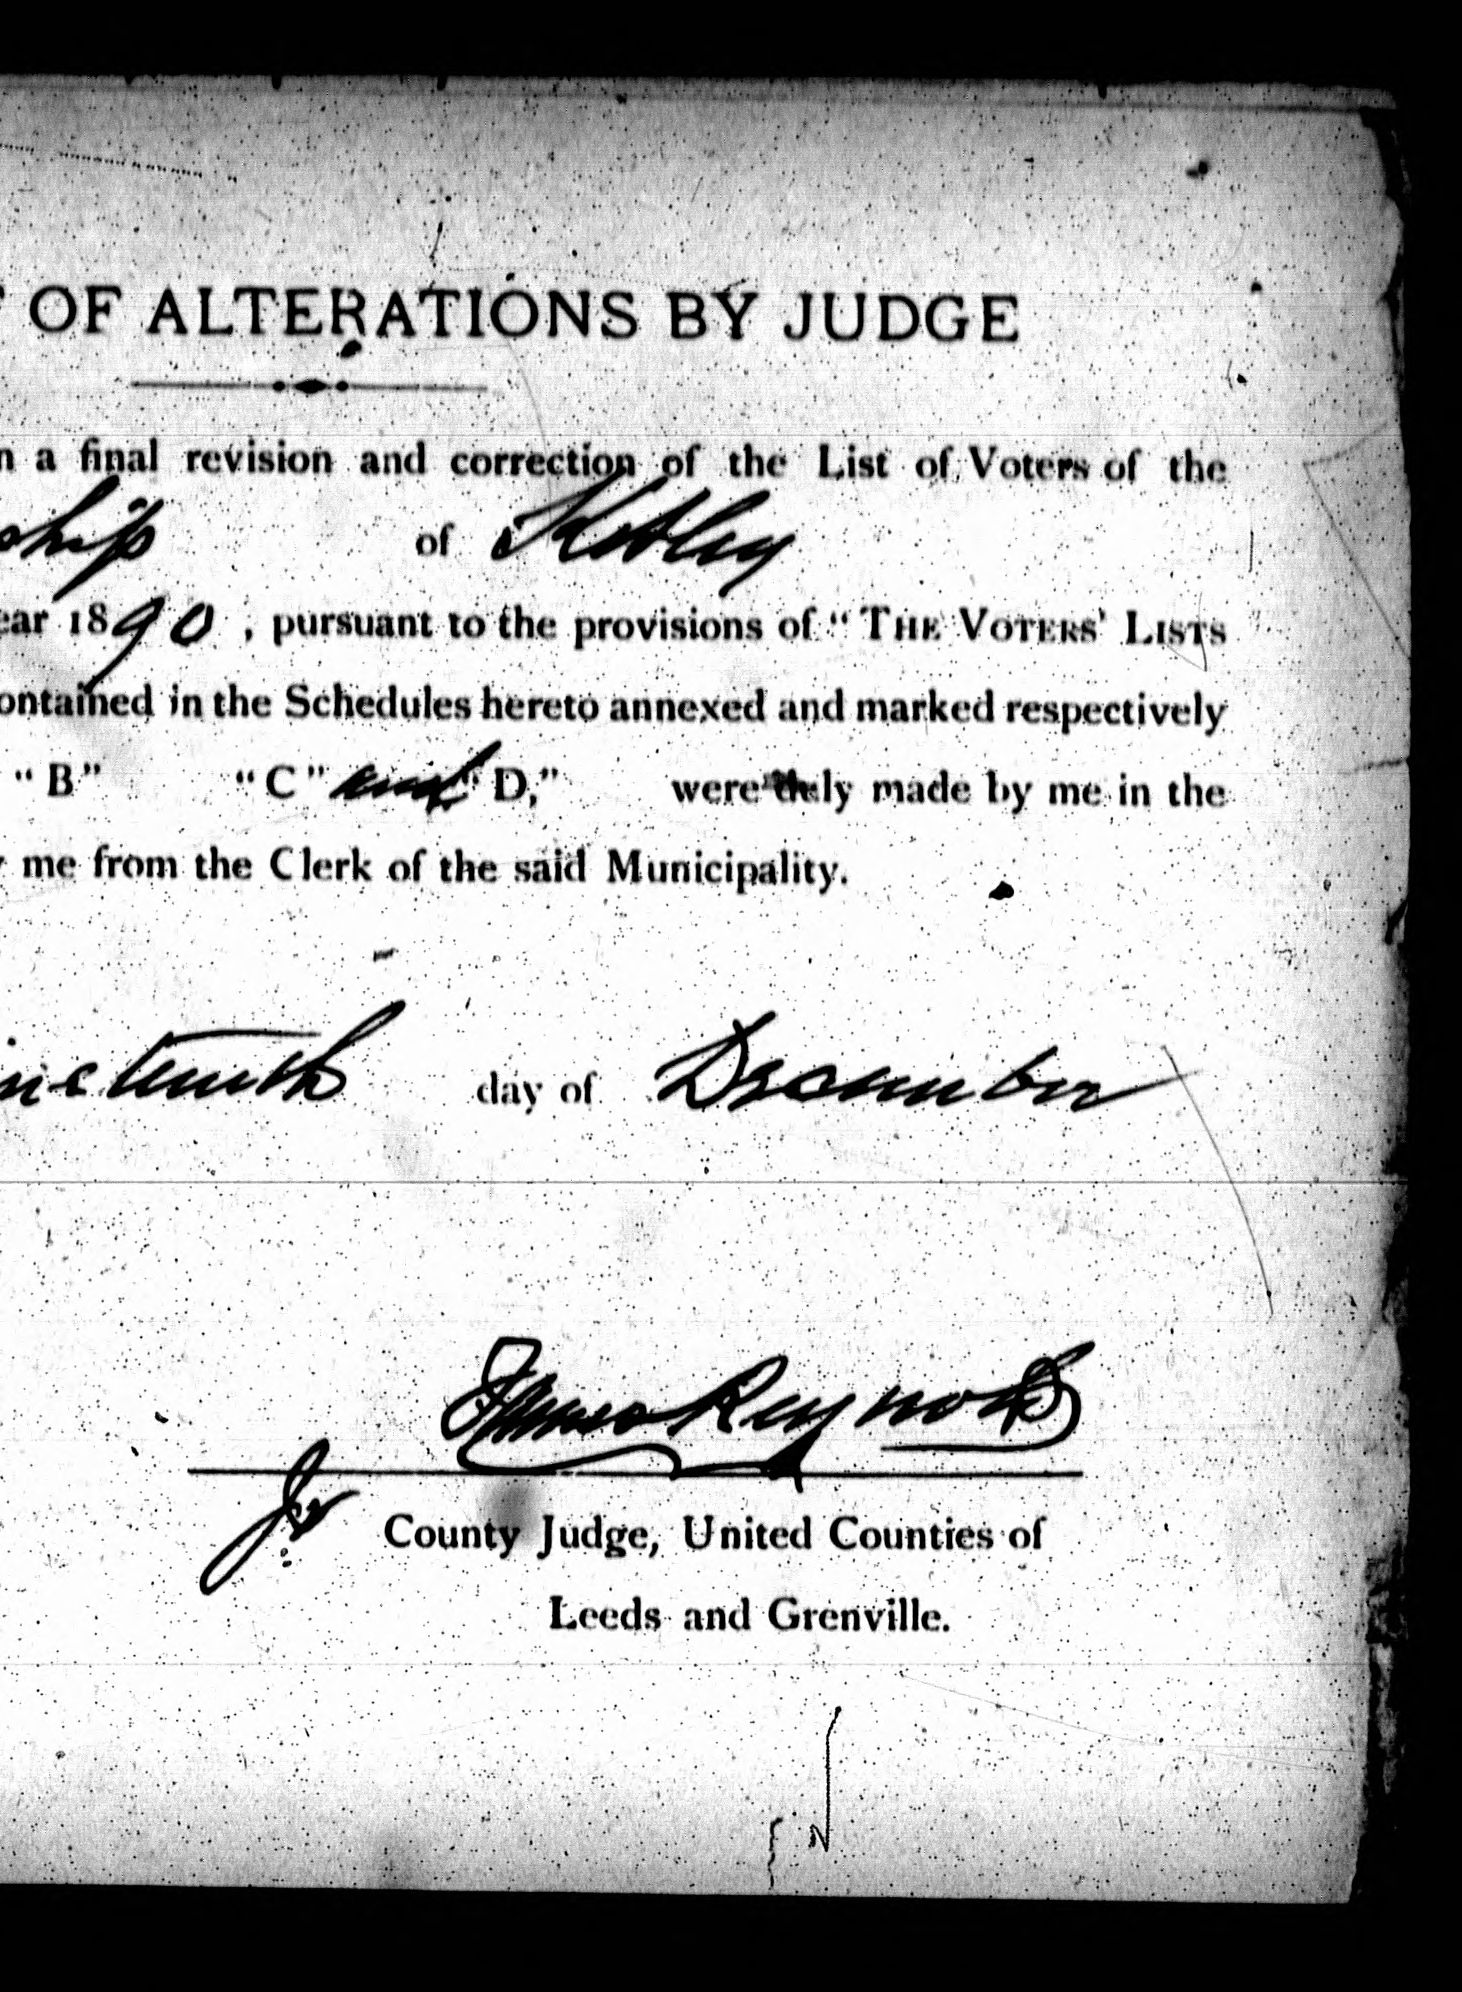 OF ALTERATIONS BY JUDGE
a final revision and correction of the List of Voters of the
ship of Kitley
ear 1890, pursuant to the provisions of "THE VOTERS' LISTS
ontained in the Schedules hereto annexed and marked respectively
"B" "C" and "D," were duly made by me in the
me from the Clerk of the said Municipality.
ineteenth day of December
James Reynolds
Jr
County Judge, United Counties of
Leeds and Grenville.